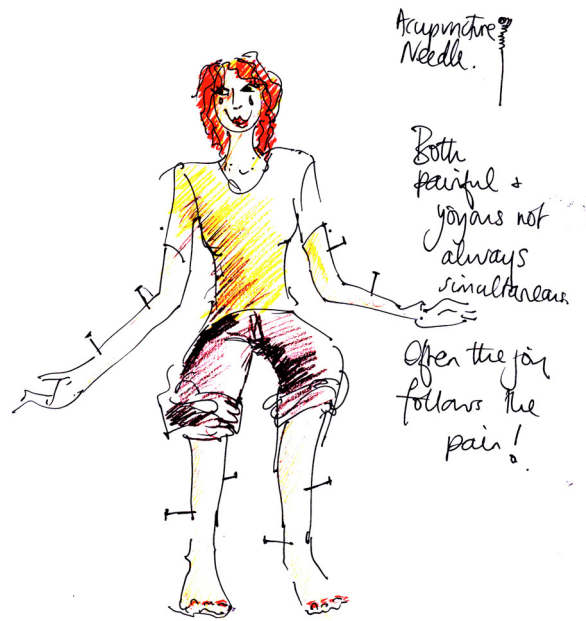 Acupuncture
Needle.
Both
painful &
yoyous not
always
simultaneous
Often the joy
follows the
pain!